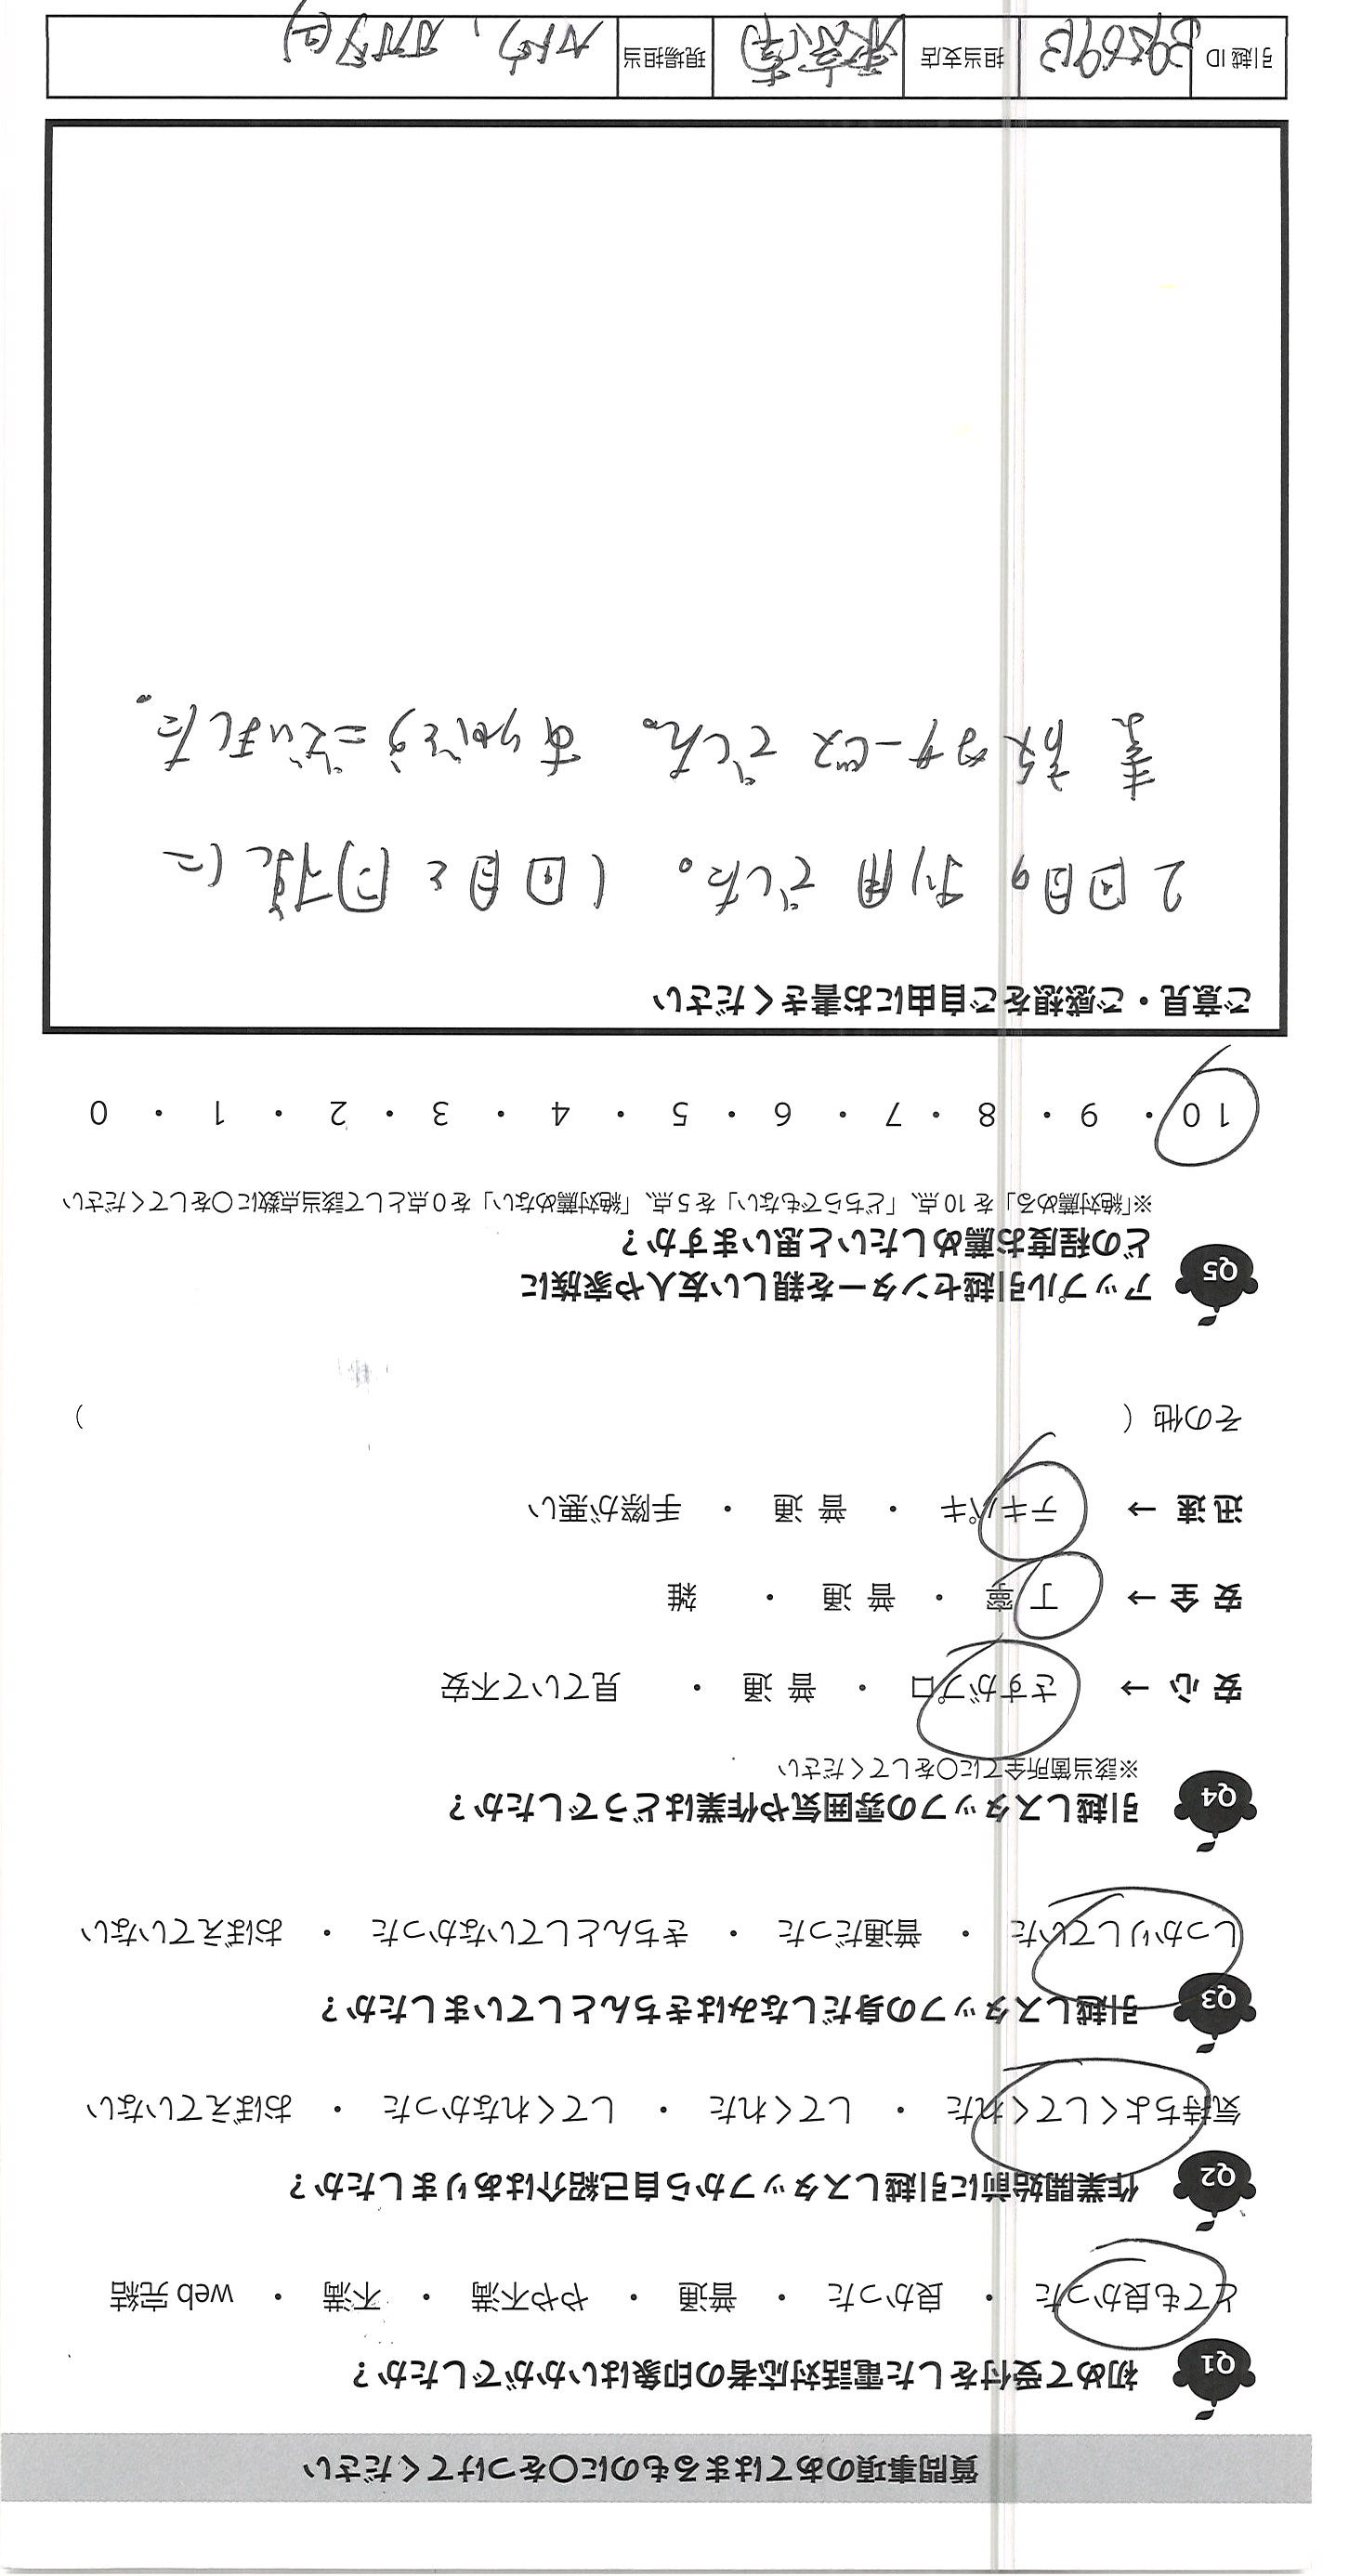 質問事項のあてはまるものに○をつけてください
Q1 初めて受付をした電話対応者の印象はいかがでしたか？
とても良かった ・ 良かった ・ 普通 ・ やや不満 ・ 不満 ・ web 完結
Q2 作業開始前に引越しスタッフから自己紹介はありましたか？
気持ちよくしてくれた ・ してくれた ・ してくれなかった ・ おぼえていない
Q3 引越しスタッフの身だしなみはきちんとしていましたか？
しっかりしていた ・ 普通だった ・ きちんとしていなかった ・ おぼえていない
Q4 引越しスタッフの雰囲気や作業はどうでしたか？
※該当箇所全てに○をしてください
安 心 → さすがプロ ・ 普 通 ・ 見ていて不安
安 全 → 丁 寧 ・ 普 通 ・ 雑
迅 速 → テキパキ ・ 普 通 ・ 手際が悪い
その他（ ）
Q5 アップル引越センターを親しい友人や家族に
どの程度お薦めしたいと思いますか？
※「絶対薦める」を 10 点、「どちらでもない」を 5 点、「絶対薦めない」を 0 点として該当点数に○をしてください
10 ・ 9 ・ 8 ・ 7 ・ 6 ・ 5 ・ 4 ・ 3 ・ 2 ・ 1 ・ 0
ご意見・ご感想をご自由にお書きください
2回目の利用でした。1回目と同様に
素敵なサービスでした。ありがとうございました。
引越 ID 担当支店 東京(南) 現場担当